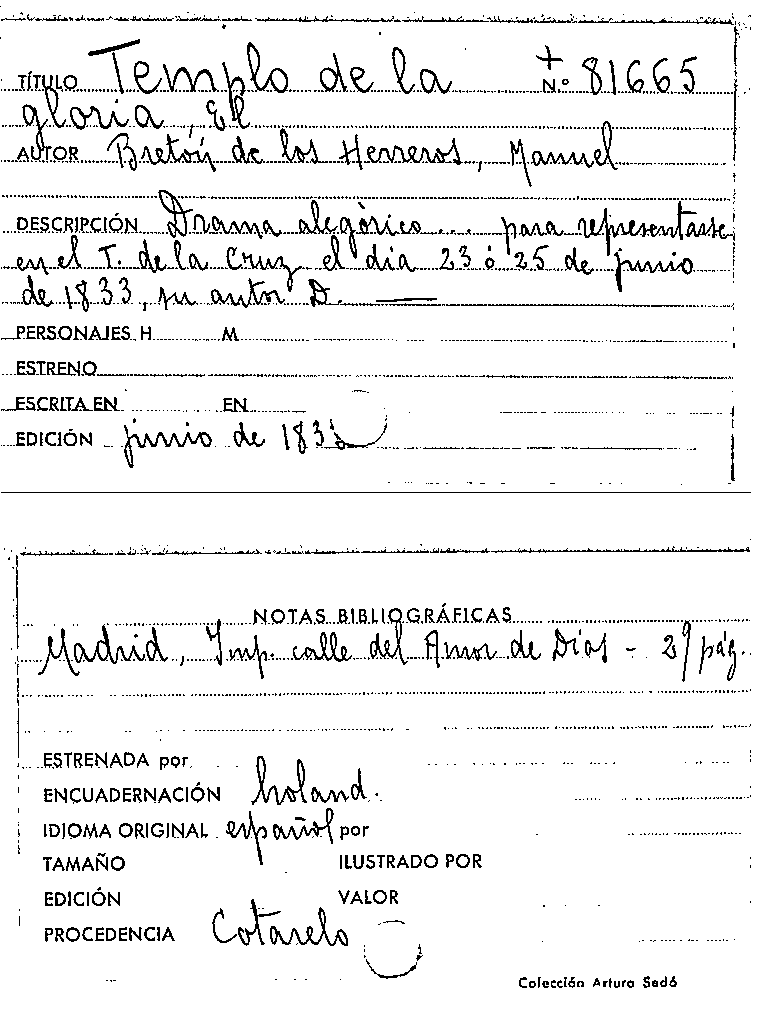 TÍTULO Templo de la + N.º 81665
gloria, El
AUTOR Bretón de los Herreros, Manuel
DESCRIPCIÓN Drama alegórico... para representarse
en el T. de la Cruz el día 23 ó 25 de junio
de 1833, su autor D. ——
PERSONAJES H M
ESTRENO
ESCRITA EN EN
EDICIÓN junio de 1833
NOTAS BIBLIOGRÁFICAS
Madrid, Imp. calle del Amor de Dios - 29 pág.
ESTRENADA por
ENCUADERNACIÓN holand.
IDIOMA ORIGINAL español por
TAMAÑO ILUSTRADO POR
EDICIÓN VALOR
PROCEDENCIA Cotarelo
Colección Arturo Sedó